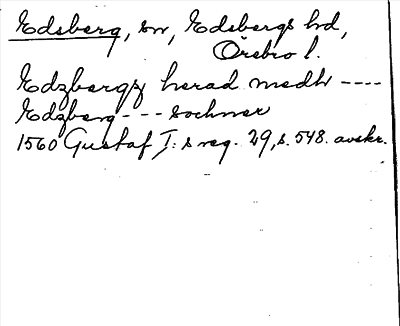 Edsberg, sn, Edsbergs hd,
Örebro l.
Edzbergz herad medh ----
Edzberg --- sochner
1560 Gustaf I:s reg. 29, s. 548. avskr.